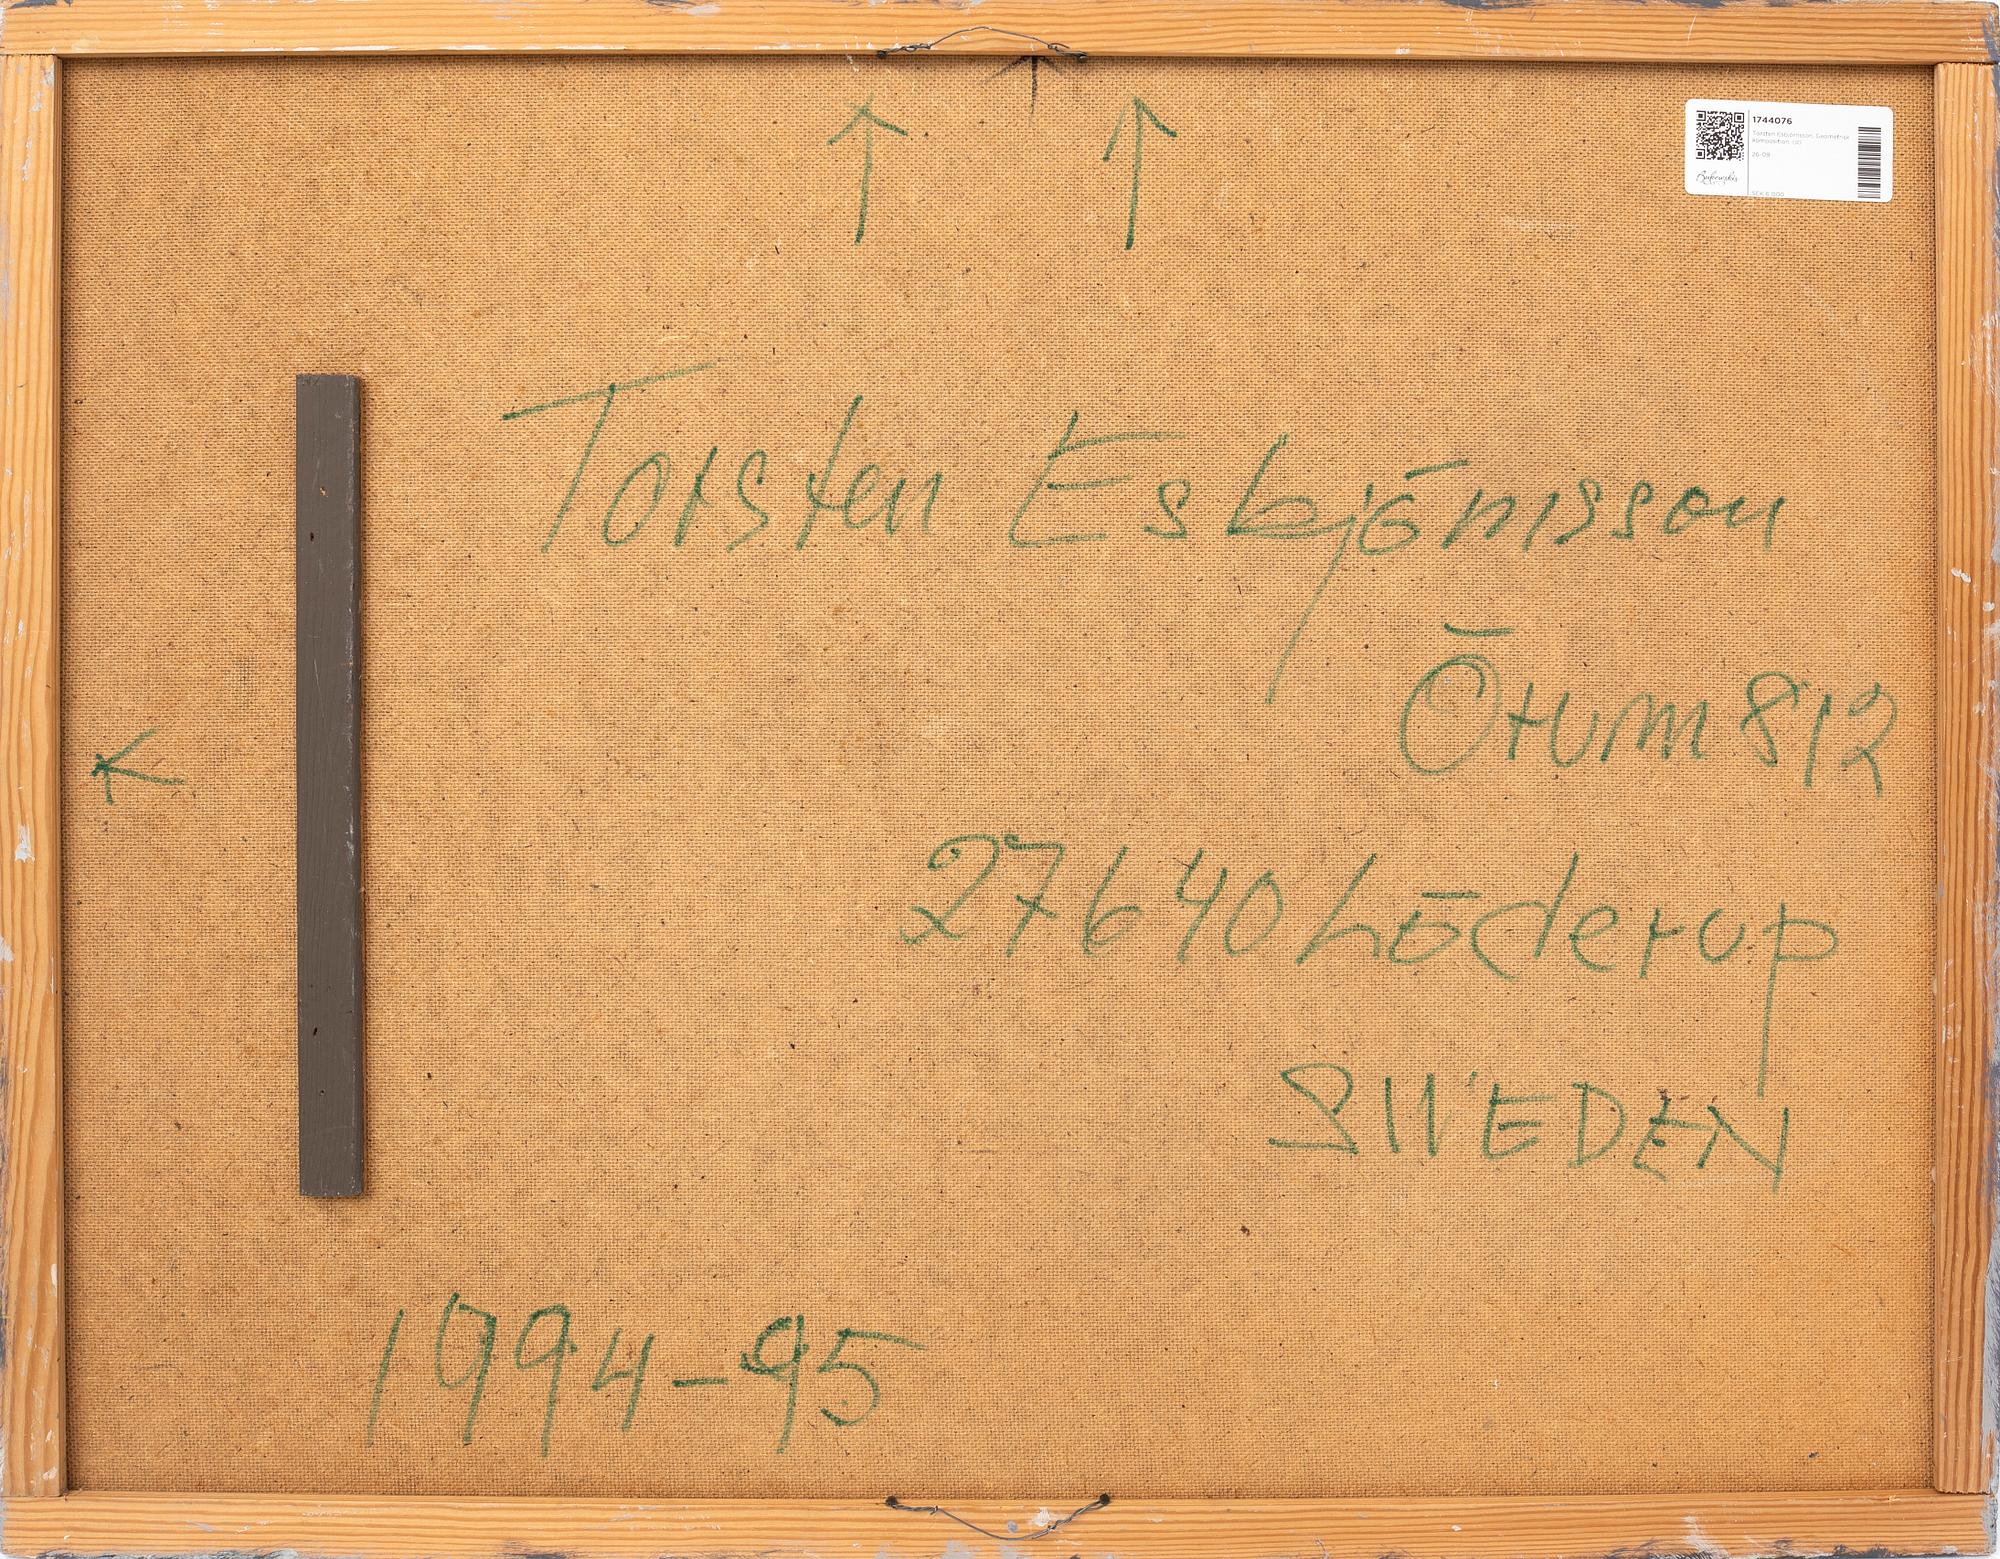 1744076
Torsten Esbjörnsson, Geometrisk
komposition. (d)
26-09
Bukowskis
SEK 6 000
Torsten Esbjörnsson
Örum 812
27640 Löderup
SWEDEN
1994-95